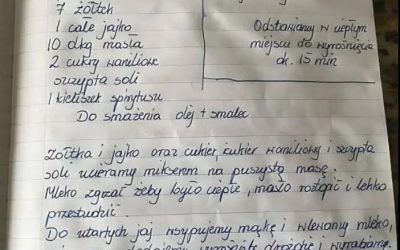 7 żółtek
1 całe jajko
10 dkg masła
2 cukry waniliowe
szczypta soli
1 kieliszek spirytusu
Do smażenia olej + smalec
Odstawiamy w ciepłym
miejscu do wyrośnięcia
ok. 15 min
Żółtka i jajko oraz cukier, cukier waniliowy i szczypta
soli ucieramy mikserem na puszystą masę.
Mleko zgrzać żeby było ciepłe, masło rostopić i lekko
przestudzić.
Do utartych jaj wsypujemy mąkę i wlewamy mleko,
dodajemy wyrośnięte drożdże i wyrabiamy